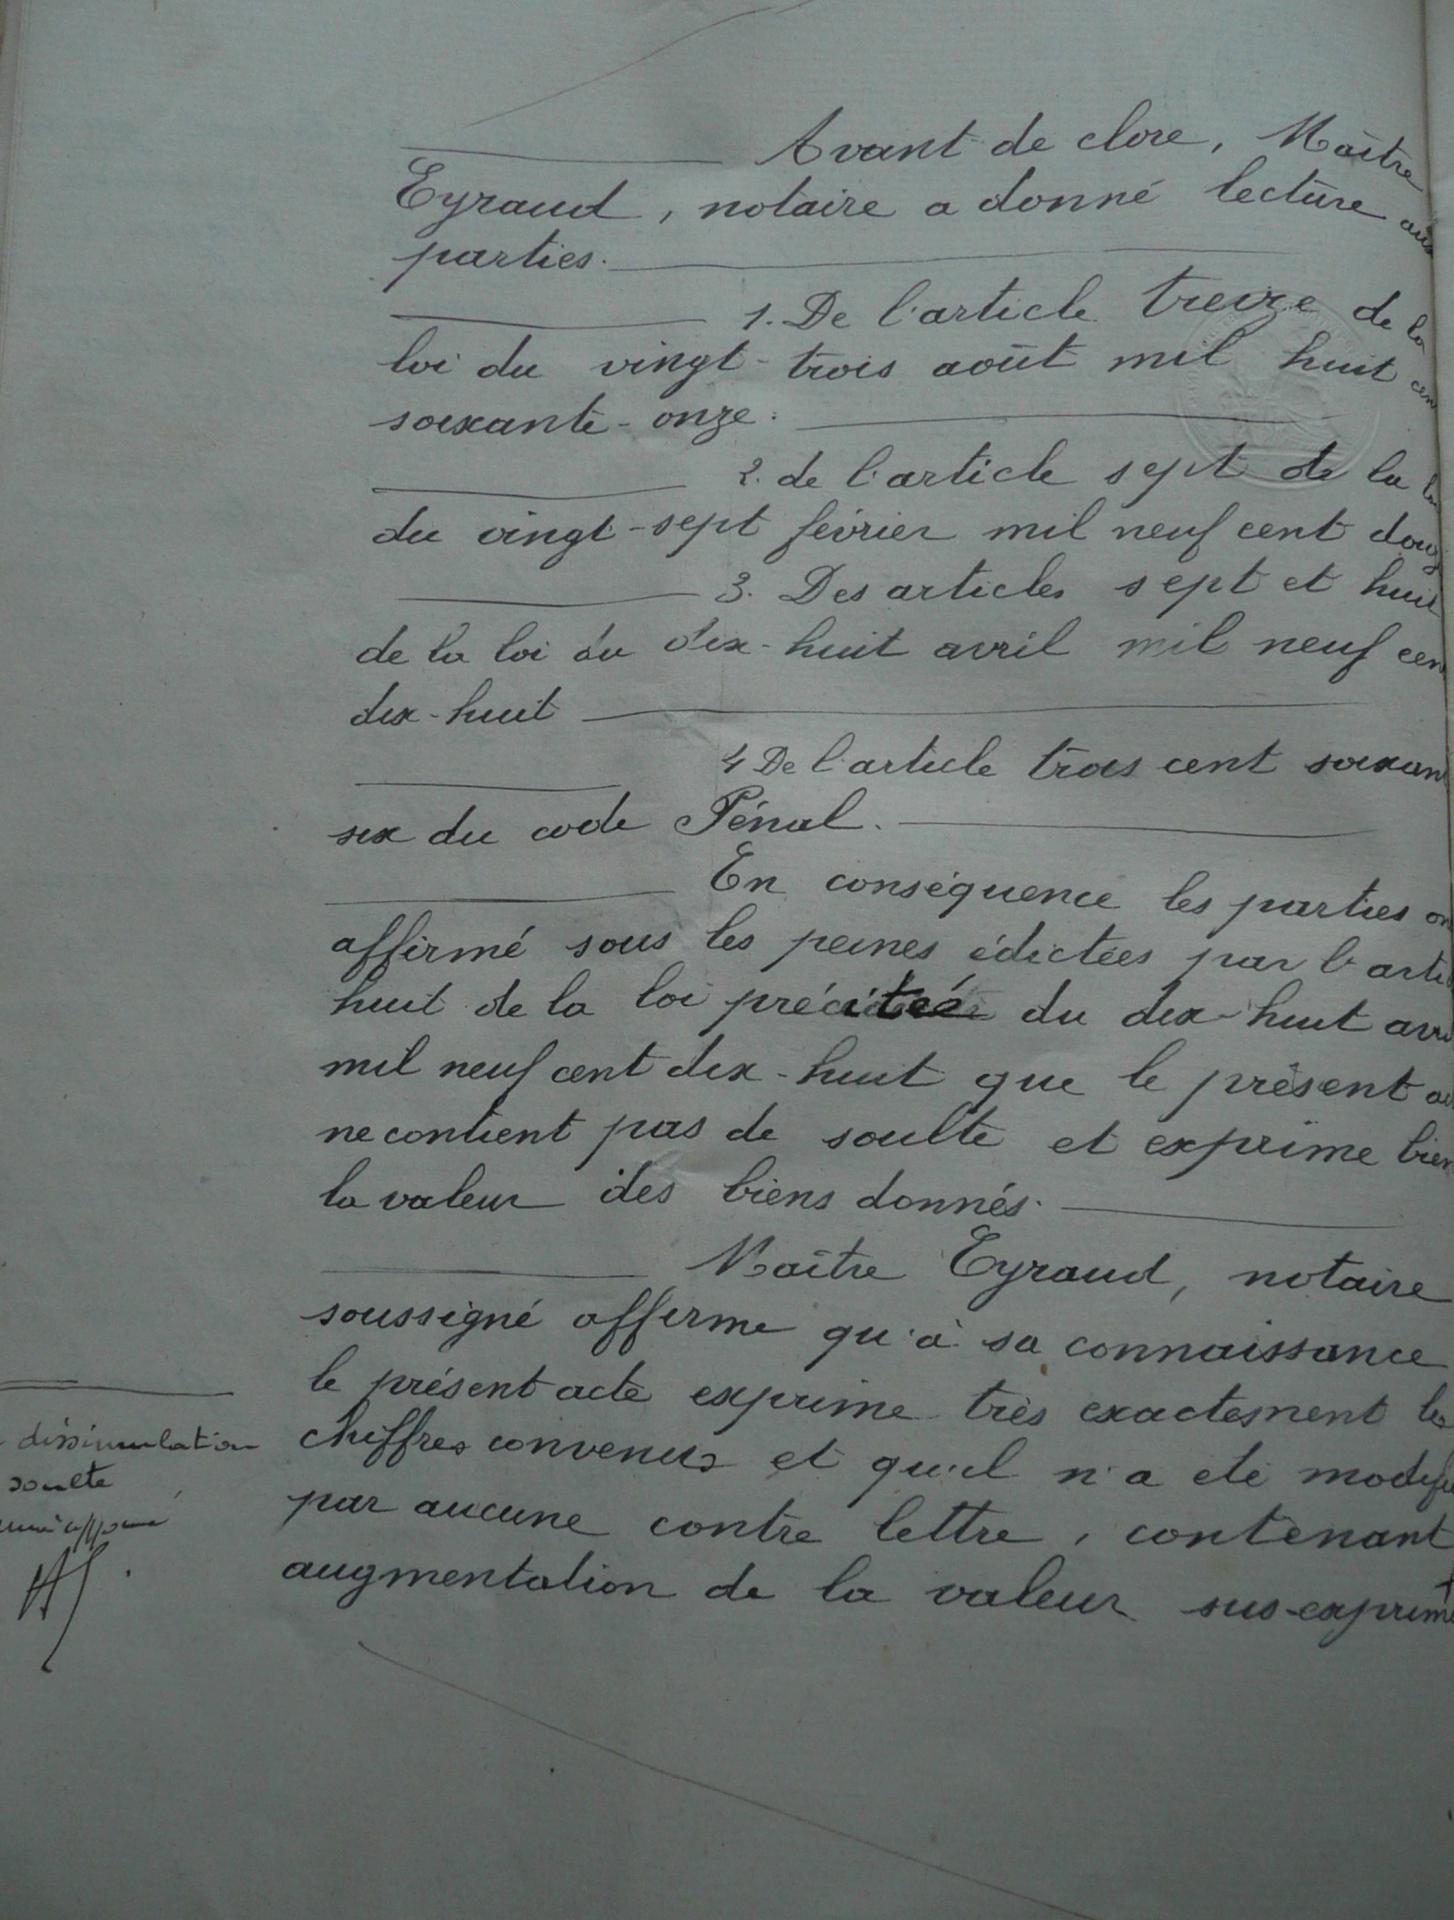 Avant de clore, Maître
Eyraud, notaire a donné lecture aux
parties.
1. De l'article treize de la
loi du vingt-trois août mil huit cen
soixante-onze.
2. de l'article sept de la loi
du vingt-sept février mil neuf cent douz
3. Des articles sept et huit
de la loi du dix-huit avril mil neuf cen
dix-huit
4 De l'article trois cent soixan
six du code Pénal.
En conséquence les parties on
affirmé sous les peines édictées par l'arti
huit de la loi précitée du dix-huit avri
mil neuf cent dix-huit que le présent ac
ne contient pas de soulte et exprime bien
la valeur des biens donnés.
Maître Eyraud, notaire
soussigné affirme qu'à sa connaissance
le présent acte exprime très exactement les
chiffres convenus et qu'il n'a été modifié
par aucune contre lettre, contenant
augmentation de la valeur sus-exprimé
dissimulation
soulte